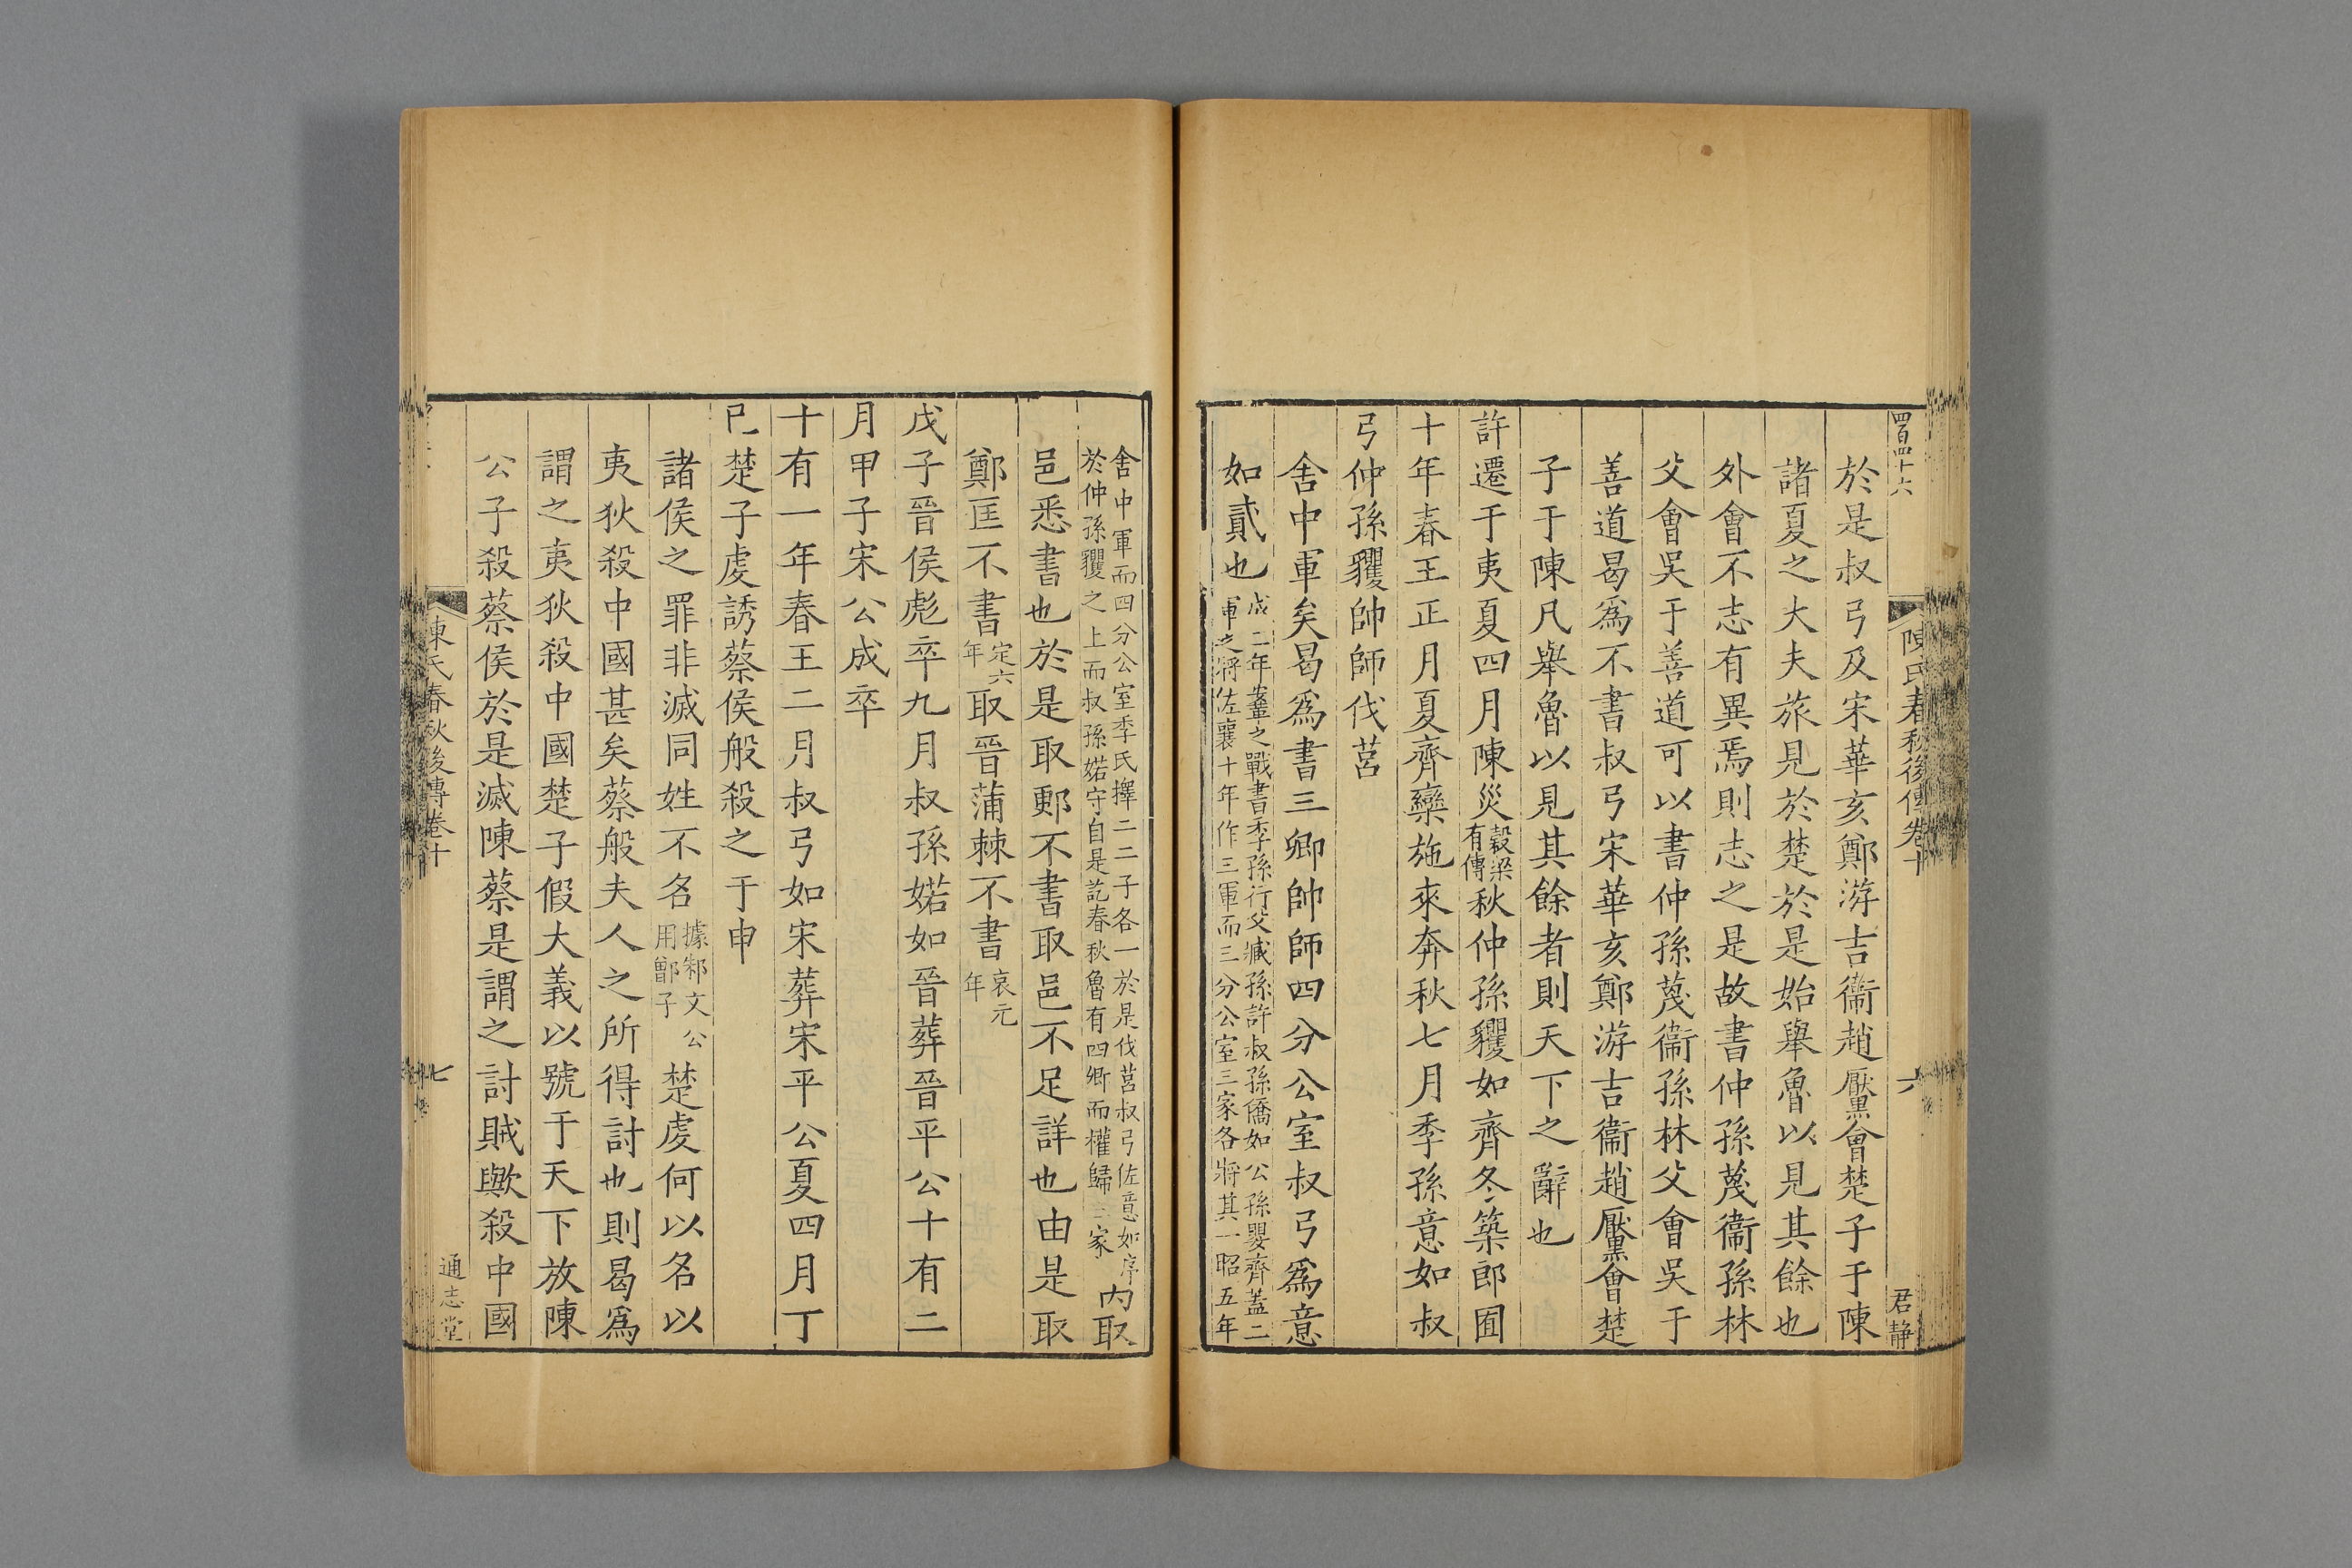 四百四十六
陳氏春秋後傳卷十
六
君靜
於是叔弓及宋華亥鄭游吉衞趙黶會楚子于陳
諸夏之大夫旅見於楚於是始舉魯以見其餘也
外會不志有異焉則志之是故書仲孫蔑衞孫林
父會吳于善道可以書仲孫蔑衞孫林父會吳于
善道曷爲不書叔弓宋華亥鄭游吉衞趙黶會楚
子于陳凡舉魯以見其餘者則天下之辭也
許遷于夷夏四月陳災穀梁有傳秋仲孫貜如齊冬築郎囿
十年春王正月夏齊欒施來奔秋七月季孫意如叔
弓仲孫貜帥師伐莒
舍中軍矣曷爲書三卿帥師四分公室叔弓爲意
如貳也成二年鞌之戰書季孫行父臧孫許叔孫僑如公孫嬰齊蓋二
軍之將佐襄十年作三軍而三分公室三家各將其一昭五年
舍中軍而四分公室季氏擇二二子各一於是伐莒叔弓佐意如序
於仲孫貜之上而叔孫婼守自是訖春秋魯有四卿而權歸三家內取
邑悉書也於是取郠不書取邑不足詳也由是取
鄭匡不書定六年取晉蒲棘不書哀元年
戊子晉侯彪卒九月叔孫婼如晉葬晉平公十有二
月甲子宋公成卒
十有一年春王二月叔弓如宋葬宋平公夏四月丁
巳楚子虔誘蔡侯般殺之于申
諸侯之罪非滅同姓不名據邾文公用鄫子楚虔何以名以
夷狄殺中國甚矣蔡般夫人之所得討也則曷爲
謂之夷狄殺中國楚子假大義以號于天下放陳
公子殺蔡侯於是滅陳蔡是謂之討賊歟殺中國
陳氏春秋後傳卷十
七
通志堂